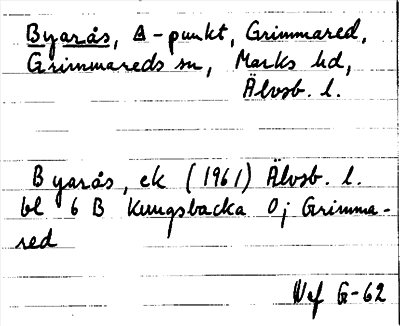 Byarås, Δ-punkt, Grimmared,
Grimmareds sn, Marks hd,
Älvsb. l.
Byarås, ek (1961) Älvsb. l.
bl 6 B Kungsbacka O; Grimma-
red
G-62